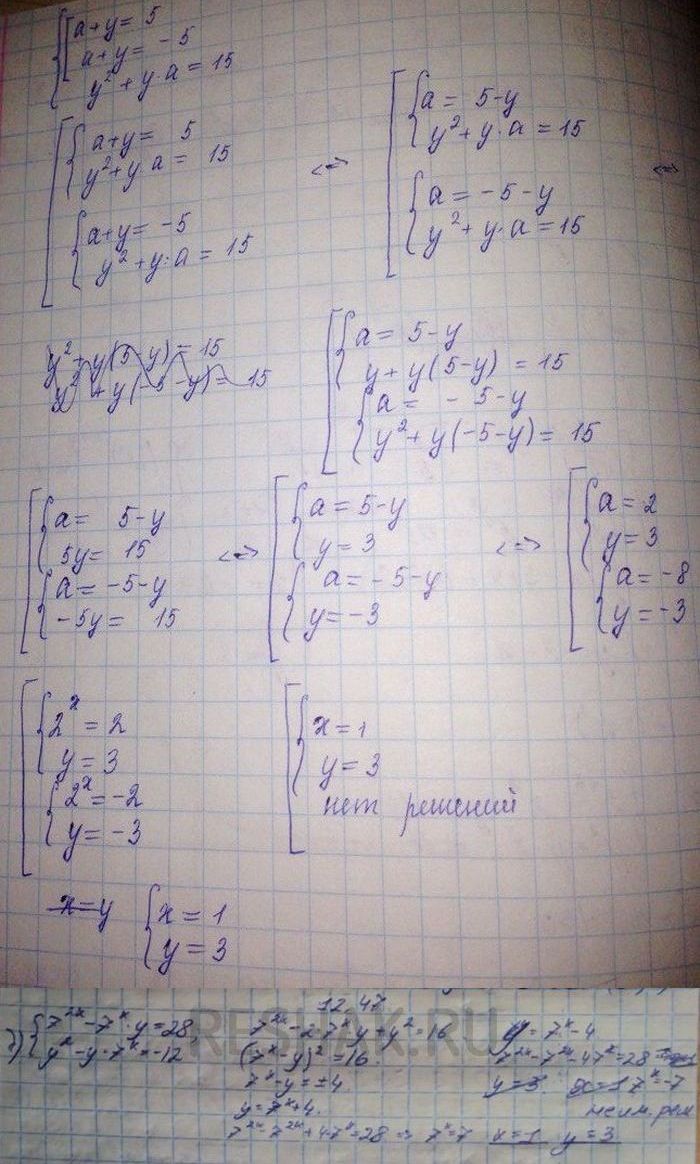 a+y= 5
a+y= -5
y²+y·a=15
a+y= 5
y²+y·a= 15
a+y= -5
y²+y·a= 15
<=>
a= 5-y
y²+y·a=15
a=-5-y
y²+y·a=15
<=>
y²+y(5-y)=15
y²+y(-5-y)=15
a= 5-y
y+y(5-y) =15
a= -5-y
y²+y(-5-y)= 15
a= 5-y
5y= 15
a=-5-y
-5y= 15
<=>
a=5-y
y=3
a=-5-y
y=-3
<=>
a=2
y=3
a=-8
y=-3
2ˣ=2
y=3
2ˣ=-2
y=-3
x=1
y=3
нет решений
x=y
x=1
y=3
12.47
RESHAK.RU
7²ˣ-7ˣ·y=28,
y²-y·7ˣ=-12
7²ˣ-2·7ˣy+y²=16
(7ˣ-y)²=16
7ˣ-y=±4
y=7ˣ+4
7²ˣ-7²ˣ+4·7ˣ=28 => 7ˣ=7
y=7ˣ-4
7²ˣ-7²ˣ-4·7ˣ=28
y=3 x=1 7ˣ=-7
x=1 y=3